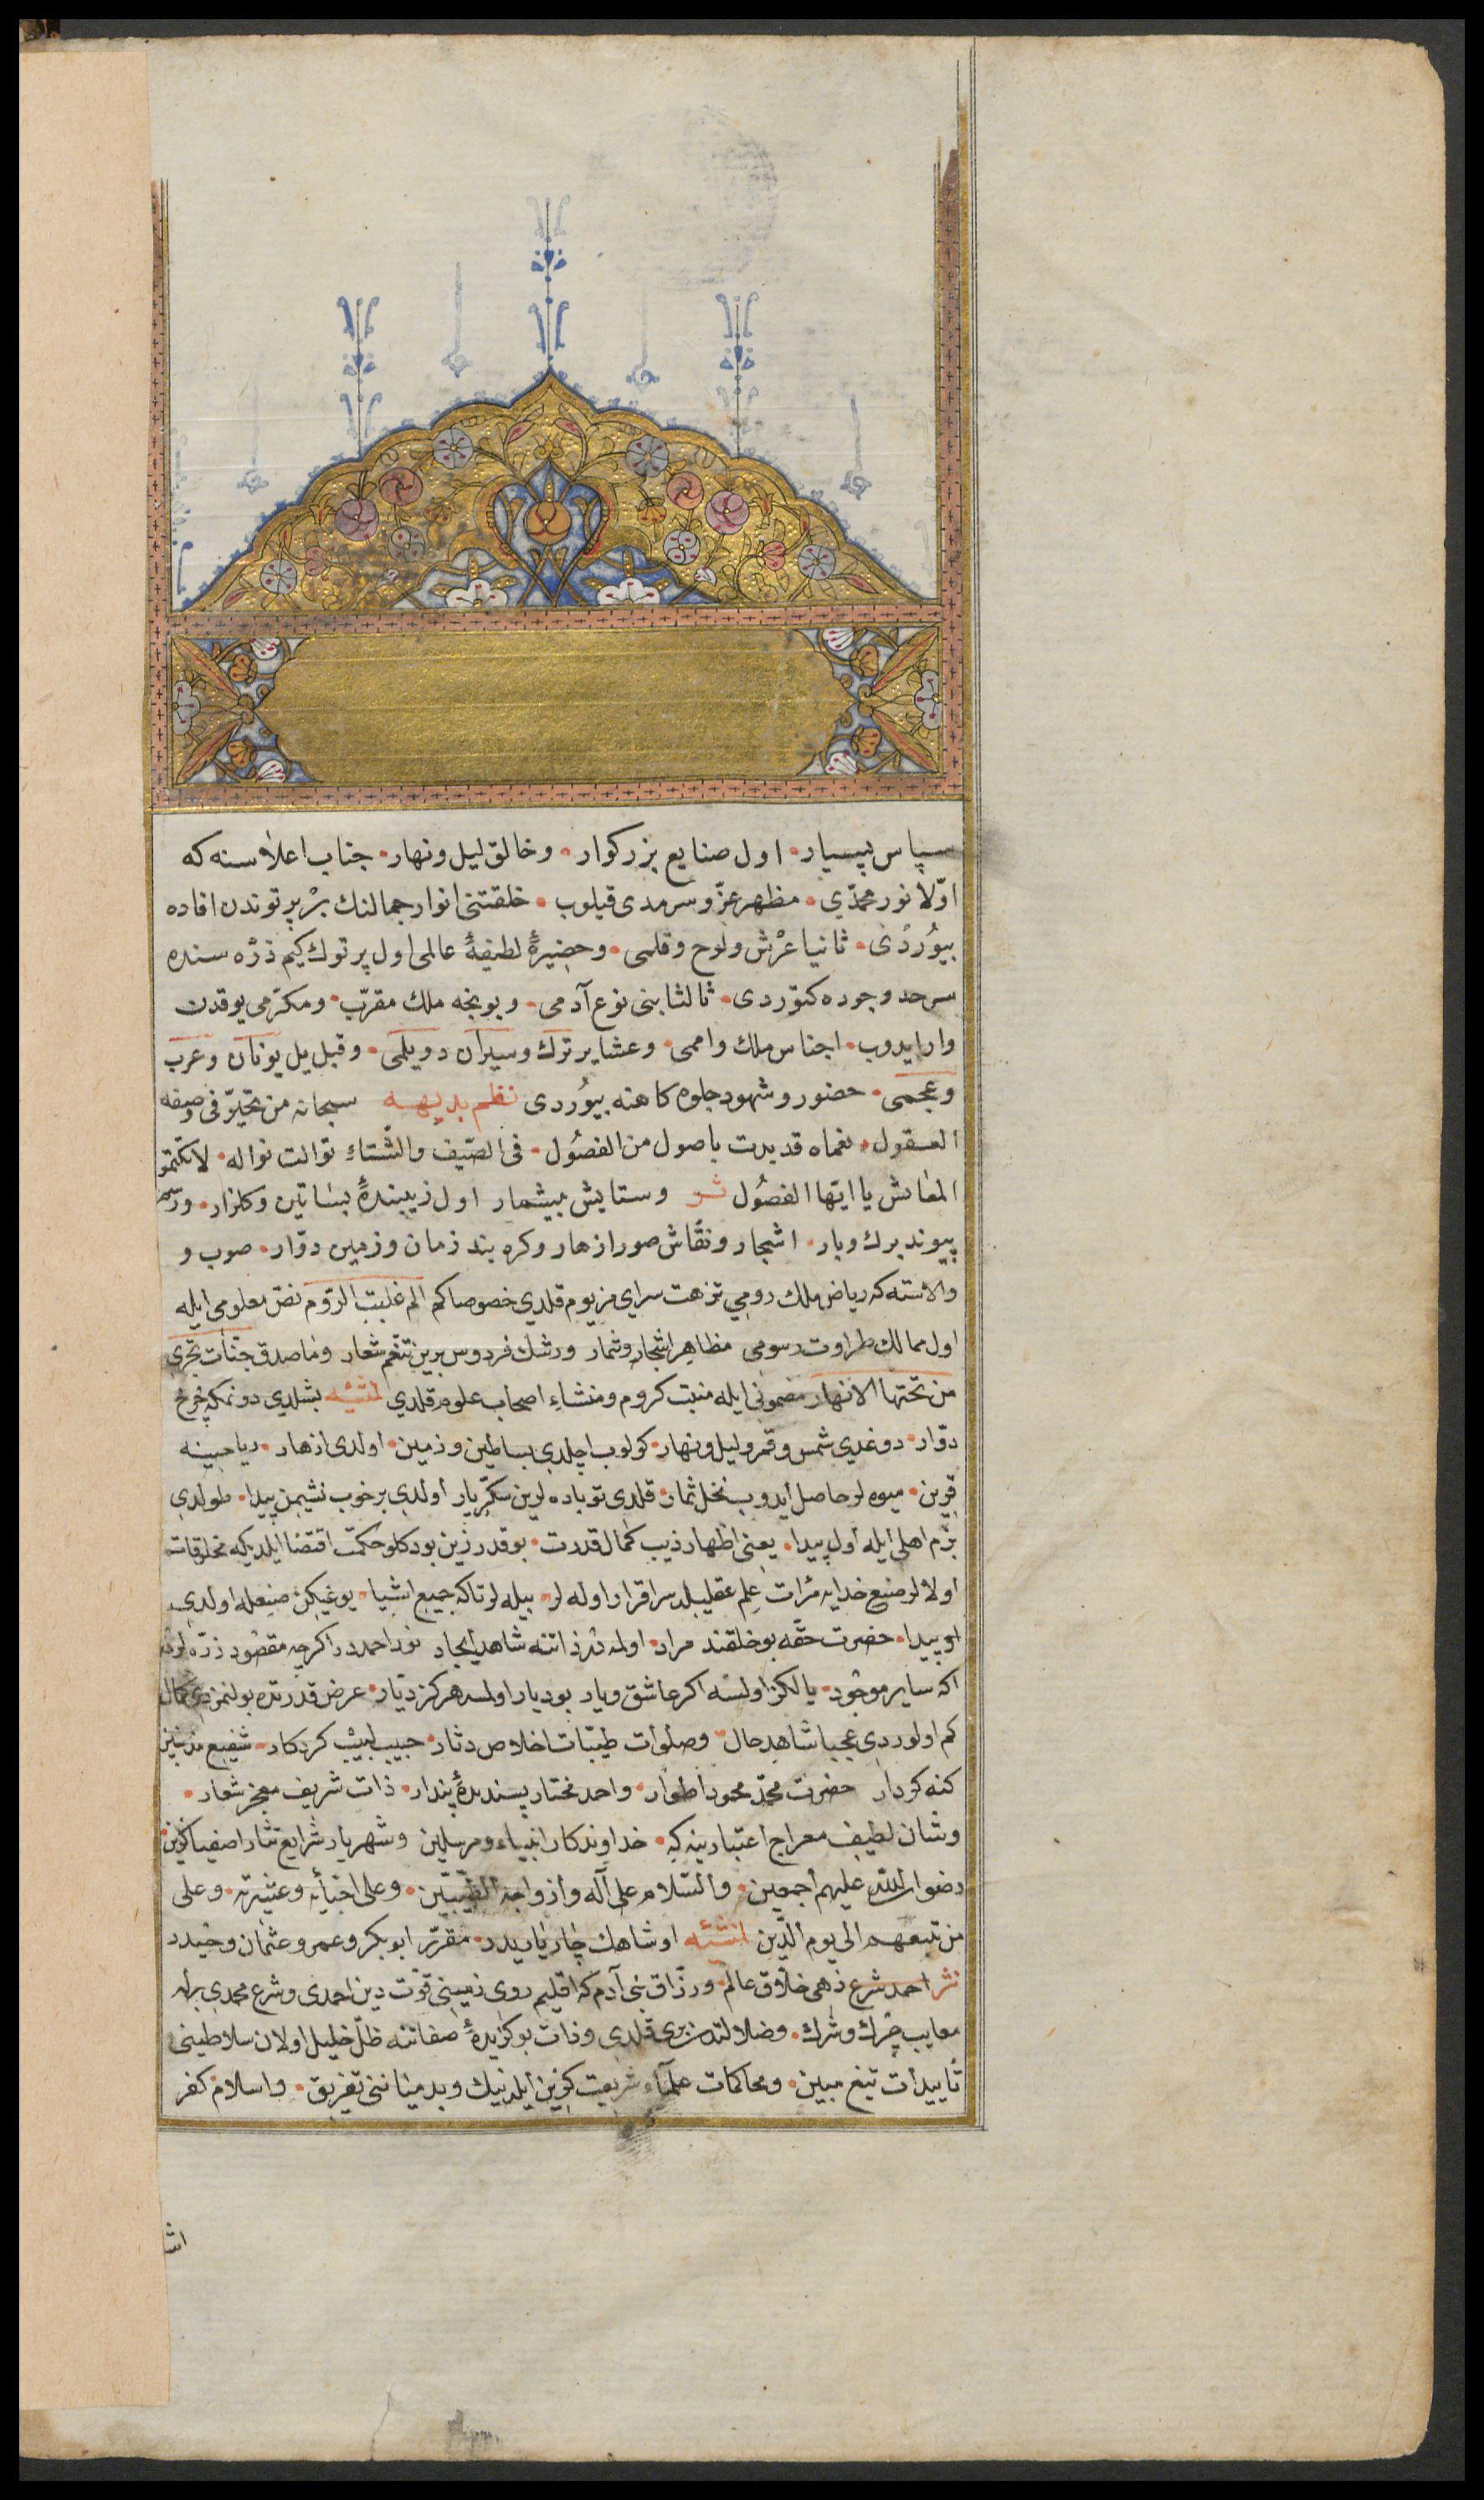 سپاس بیسیار • اول صنایع بزركوار • وخالق لیل ونهار • جناب اعلاسنه كه
اوّلا نور محمدّی • مظهر عزّ وسرمدی قیلوب • خلقتنی انوار جمالنك بر پرتوندن افاده
بیوُردی • ثانیا عرش ولوح وقلمی • وحضیرهٔ لطیفهٔ عالمی اول پرتوك كیم ذرّه سنده
سرحد وجوده كتوردی • ثالثا بنی نوع آدمی • وبونجه ملك مقرّب • ومكرّمی یوقدن
وار ایدوب • اجناس ملك واممی • وعشایر ترك وسیران دویلمی • وقبل یل یونان وعرب
وعجمی • حضور وشهود جلوه كاهنه بیوُردی نظم بدیهه سبحانه من تحیّر فی وصفه
العقول • نعماه قد بدت باصول من الفصُول • فی الصّیف والشّتاء توالت نواله • لا تكتمو
المعٰاش یا ایّها الفضُول نثر وستایش بیشمار اول زیبندهٔ بساتین وكلزار •
پیوند برك وبار • اشجار ونقّاش صور ازهار وكره بند زمان وزمین دوّار • صوب و
والاسنه كه ریاض ملك رومی نزهت سرای مزیوم قلدی خصوصا كم الم غلبت الرّوم نصّ معلومی ایله
اول ممالك طراوت رسومی مظاهر اشجار وثمار ورشك فردوس برین تنعّم شعار وماصدق جنّات تجری
من تحتها الانهار مضمونی ایله منبت كروم ومنشاء اصحاب علوم قلدی لمنشئه بشلدی دونمكه چرخ
دوّار • دوغدی شمس وقمر ولیل ونهار • كولوب اچلدی بساطین وزمین • اولدی ازهار • ریاحینه
قرین • میوه لر حاصل أیدوب نخل ثمار • قلدی نوباده لرین سكّربار أولدی بر خوب نشیمن پیدا • طولدی
بزم اهلی أیله أول بیدا • یعنی اظهار ذیب كمال قدرت • بو قدر زین بودكلو حكمت اقتضا ایلدیكه مخلوقات
اولالر صنع خدایه مرٰات علم عقلیله اقرار اوله لر • بیله لر تاكه جمیع اشیا • یوغیكن صنعله اولدی
پیدا • حضرت حقّه بو خلقتدن مراد • اولمدر ذاتنه شاهد أیجاد نور احمددر اكرچه مقصُود ذرّه لردر
اكه سایر موجُود • یالكز اولسه اكر عاشق ویار بو دیار اولمسه هركز دیّار • عرض قدرتده بولنمزدی كمال
كم اولوردی عجبا شاهد حال وصلٰوات طیّبات اخلاص دثار • حبیب لبیب كردكار • شفیع مذنبین
كنه كردار حضرت محمّد محمود اطوار • واحمد مختار پسندیدهٔ پندار • ذات شریف معجز شعار •
وشان لطیف معراج اعتبارینه كه • خداوندكار انبیاء ومرسلین وشهریار شرایع نثار اصفیا كزین •
رضوان اللّٰه علیهم أجمعین • والسّلام علی آله وأزواجه الطّیّبین • وعلی احبّأیه وعشیرته • وعلی
من تبعهم الی یوم الدّین لمنشئه اوشاهك چار یاریدر • مقرّر ابو بكر وعمر وعثمان وحیدر
نثر احمد شرع زهی خلّاق عالم • ورزّاق بنی آدم كه اقلیم روی زمینی قوّت دین احمدی وشرع محمدی برله
معایب چرك وشرك • وضلالتدن بری قلدی وذات بركزیدهٔ صفاتنه ظلّ خلیل اولان سلاطینی
تأییدٰات تیغ مبین • ومحاكمات علمآء شریعت كزین أیله نیك وبد میٰاننی تفریق • واسلام كفر